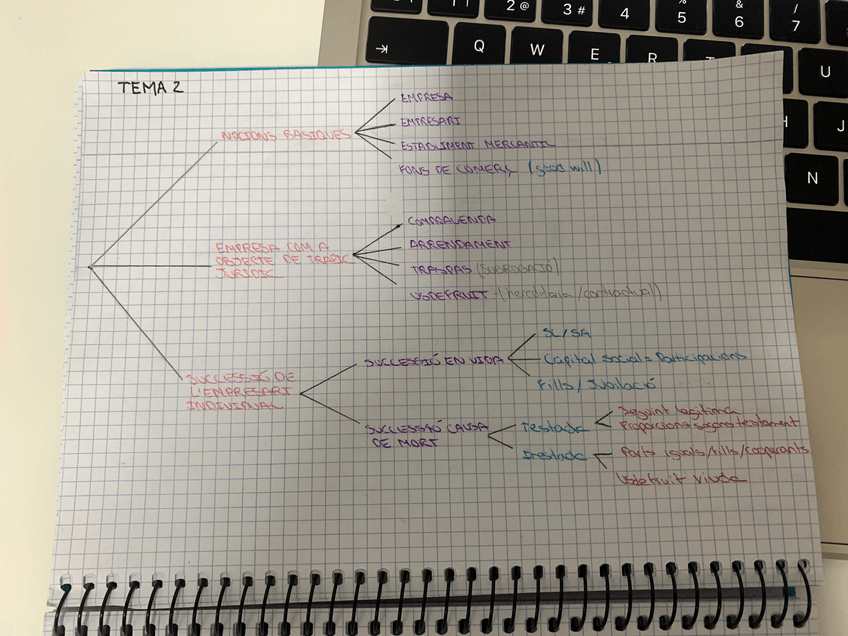 2 @
3 #
4
%
5
&
6
/
7
Q
W
E
R
T
U
J
N
TEMA 2
NOCIONS BÀSIQUES
EMPRESA
EMPRESARI
ESTABLIMENT MERCANTIL
FONS DE COMERÇ (good will)
EMPRESA COM A
OBJECTE DE TRÀFIC
JURÍDIC
COMPRAVENDA
ARRENDAMENT
TRASPÀS (SUBROGACIÓ)
USDEFRUIT - (hereditaria / contractual)
SUCCESSIÓ DE
L'EMPRESARI
INDIVIDUAL
SUCCESSIÓ EN VIDA
SL/SA
Capital social = Participacions
Fills / Jubilació
SUCCESSIÓ CAUSA
DE MORT
Testada
Seguint legítima
Proporcions segons testament
Intestada
Parts iguals/fills/
Usdefruit viuda